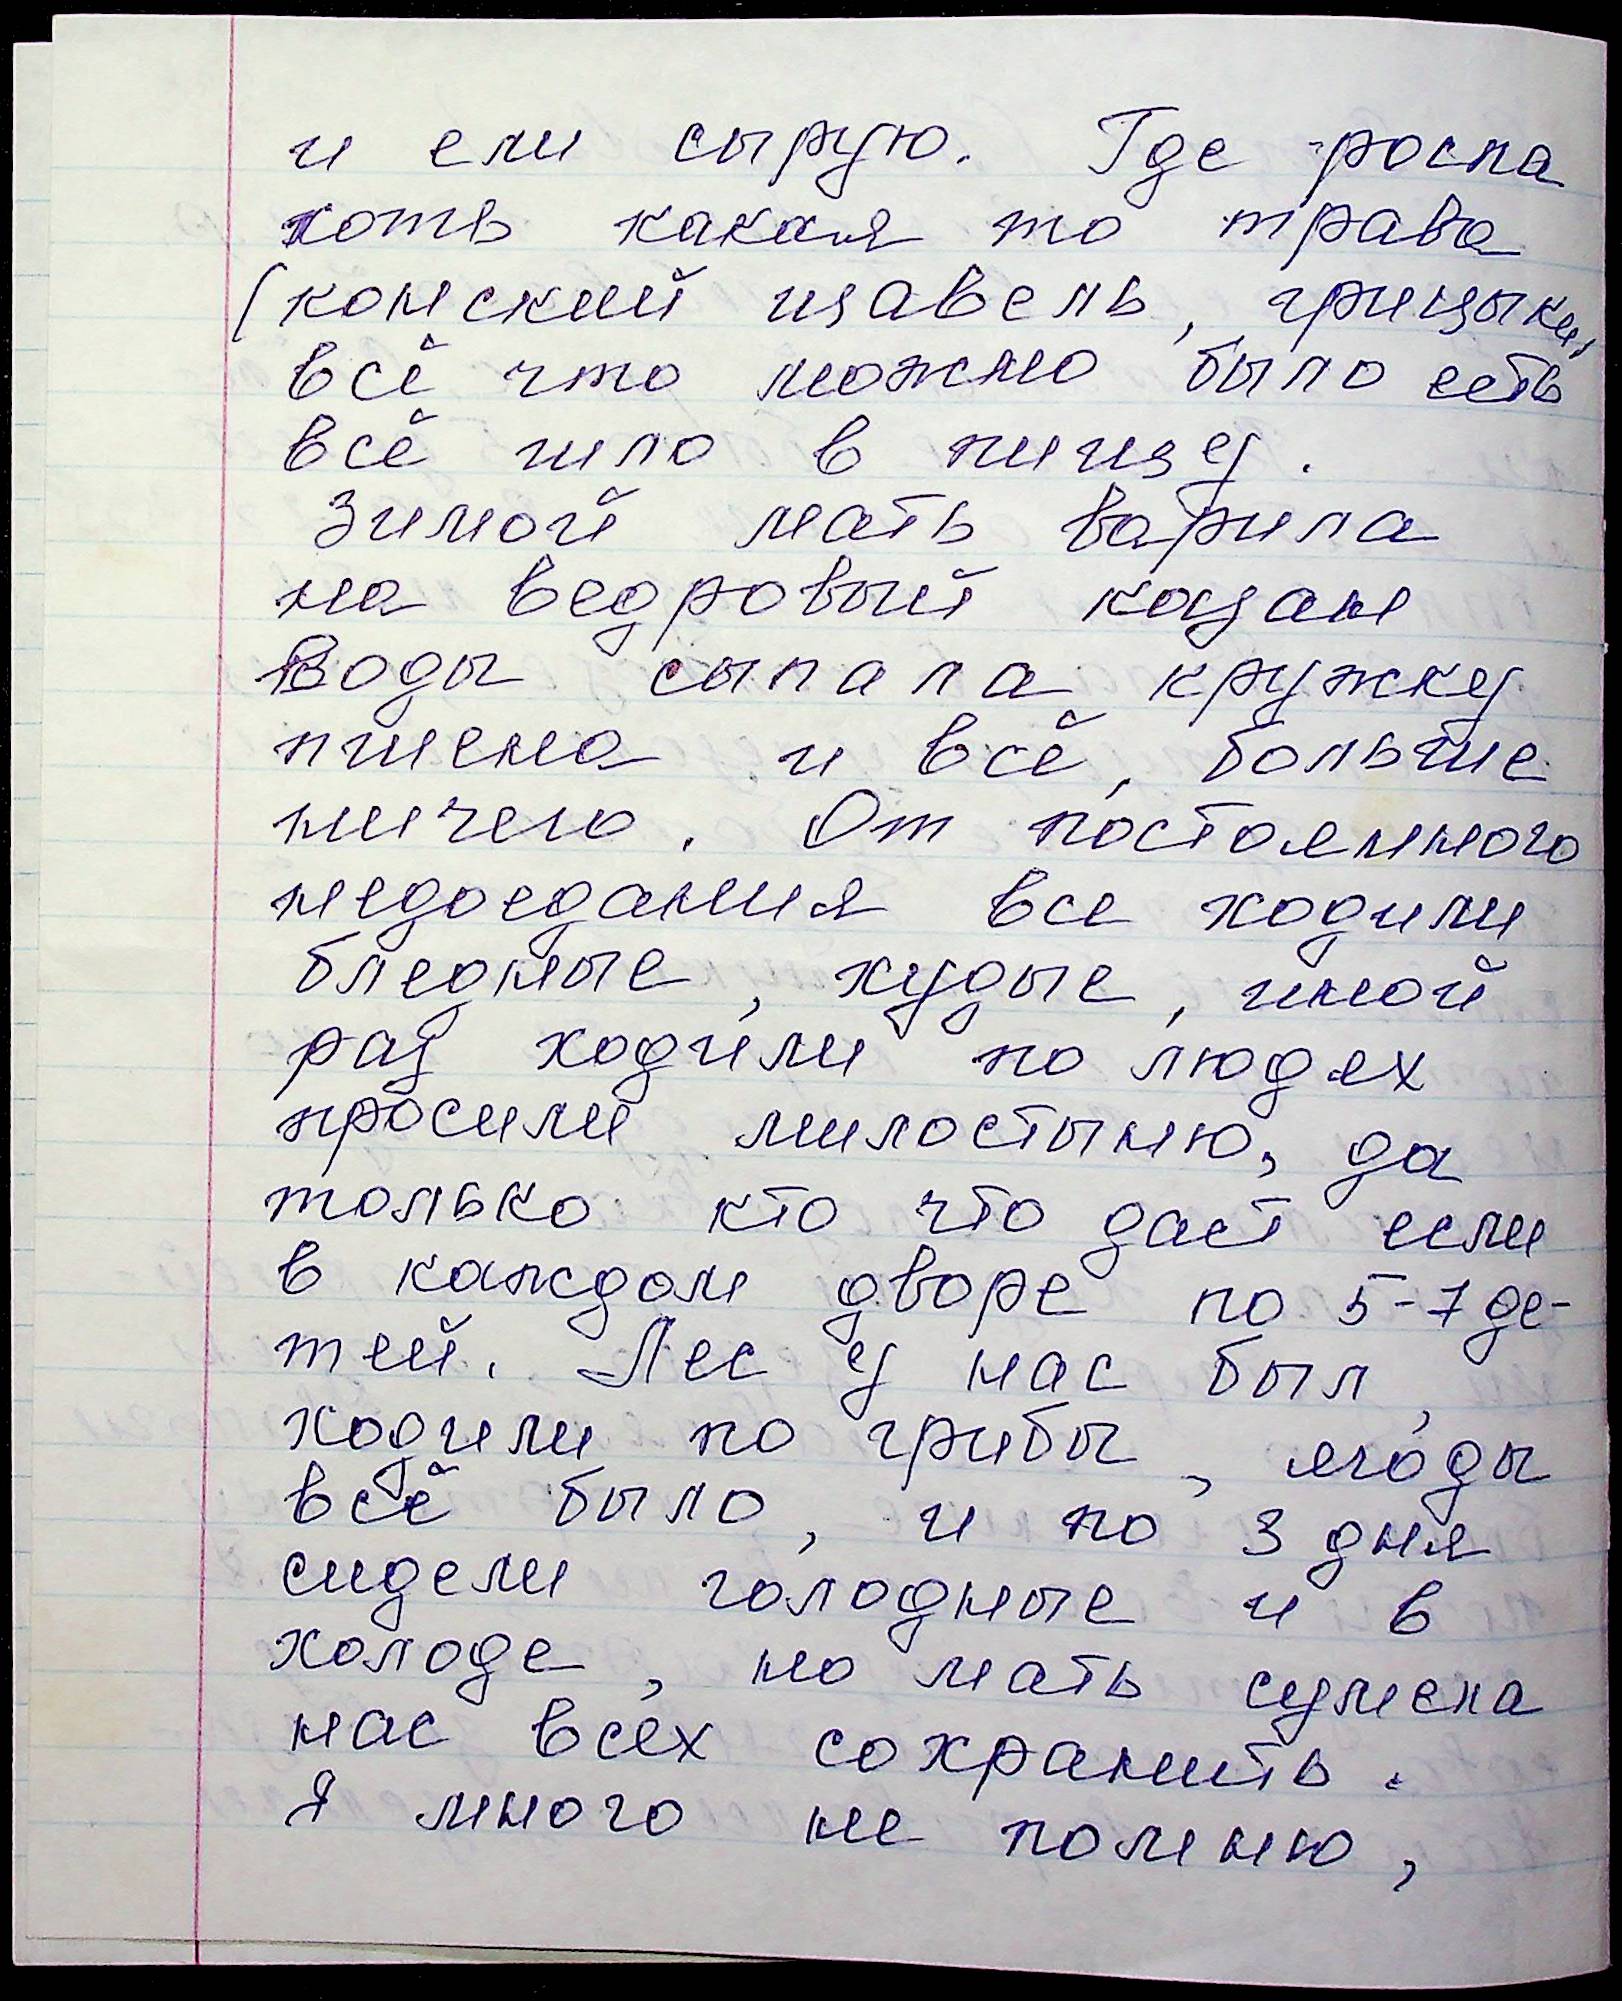 и ели сырую. Где росла
хоть какая то трава
(конский щавель, грицыки,
всё что можно было есть
всё шло в пищу.
Зимой мать варила
на ведровый казан
воды сыпала кружку
пшена и всё, больше
ничего. От постоянного
недоедания все ходили
бледные, худые, иной
раз ходили по людях
просили милостыню, да
только кто что даст если
в каждом дворе по 5-7 де-
тей. Лес у нас был,
ходили по грибы, ягоды
всё было, и по 3 дня
сидели голодные и в
холоде, но мать сумела
нас всех сохранить.
Я много не помню,